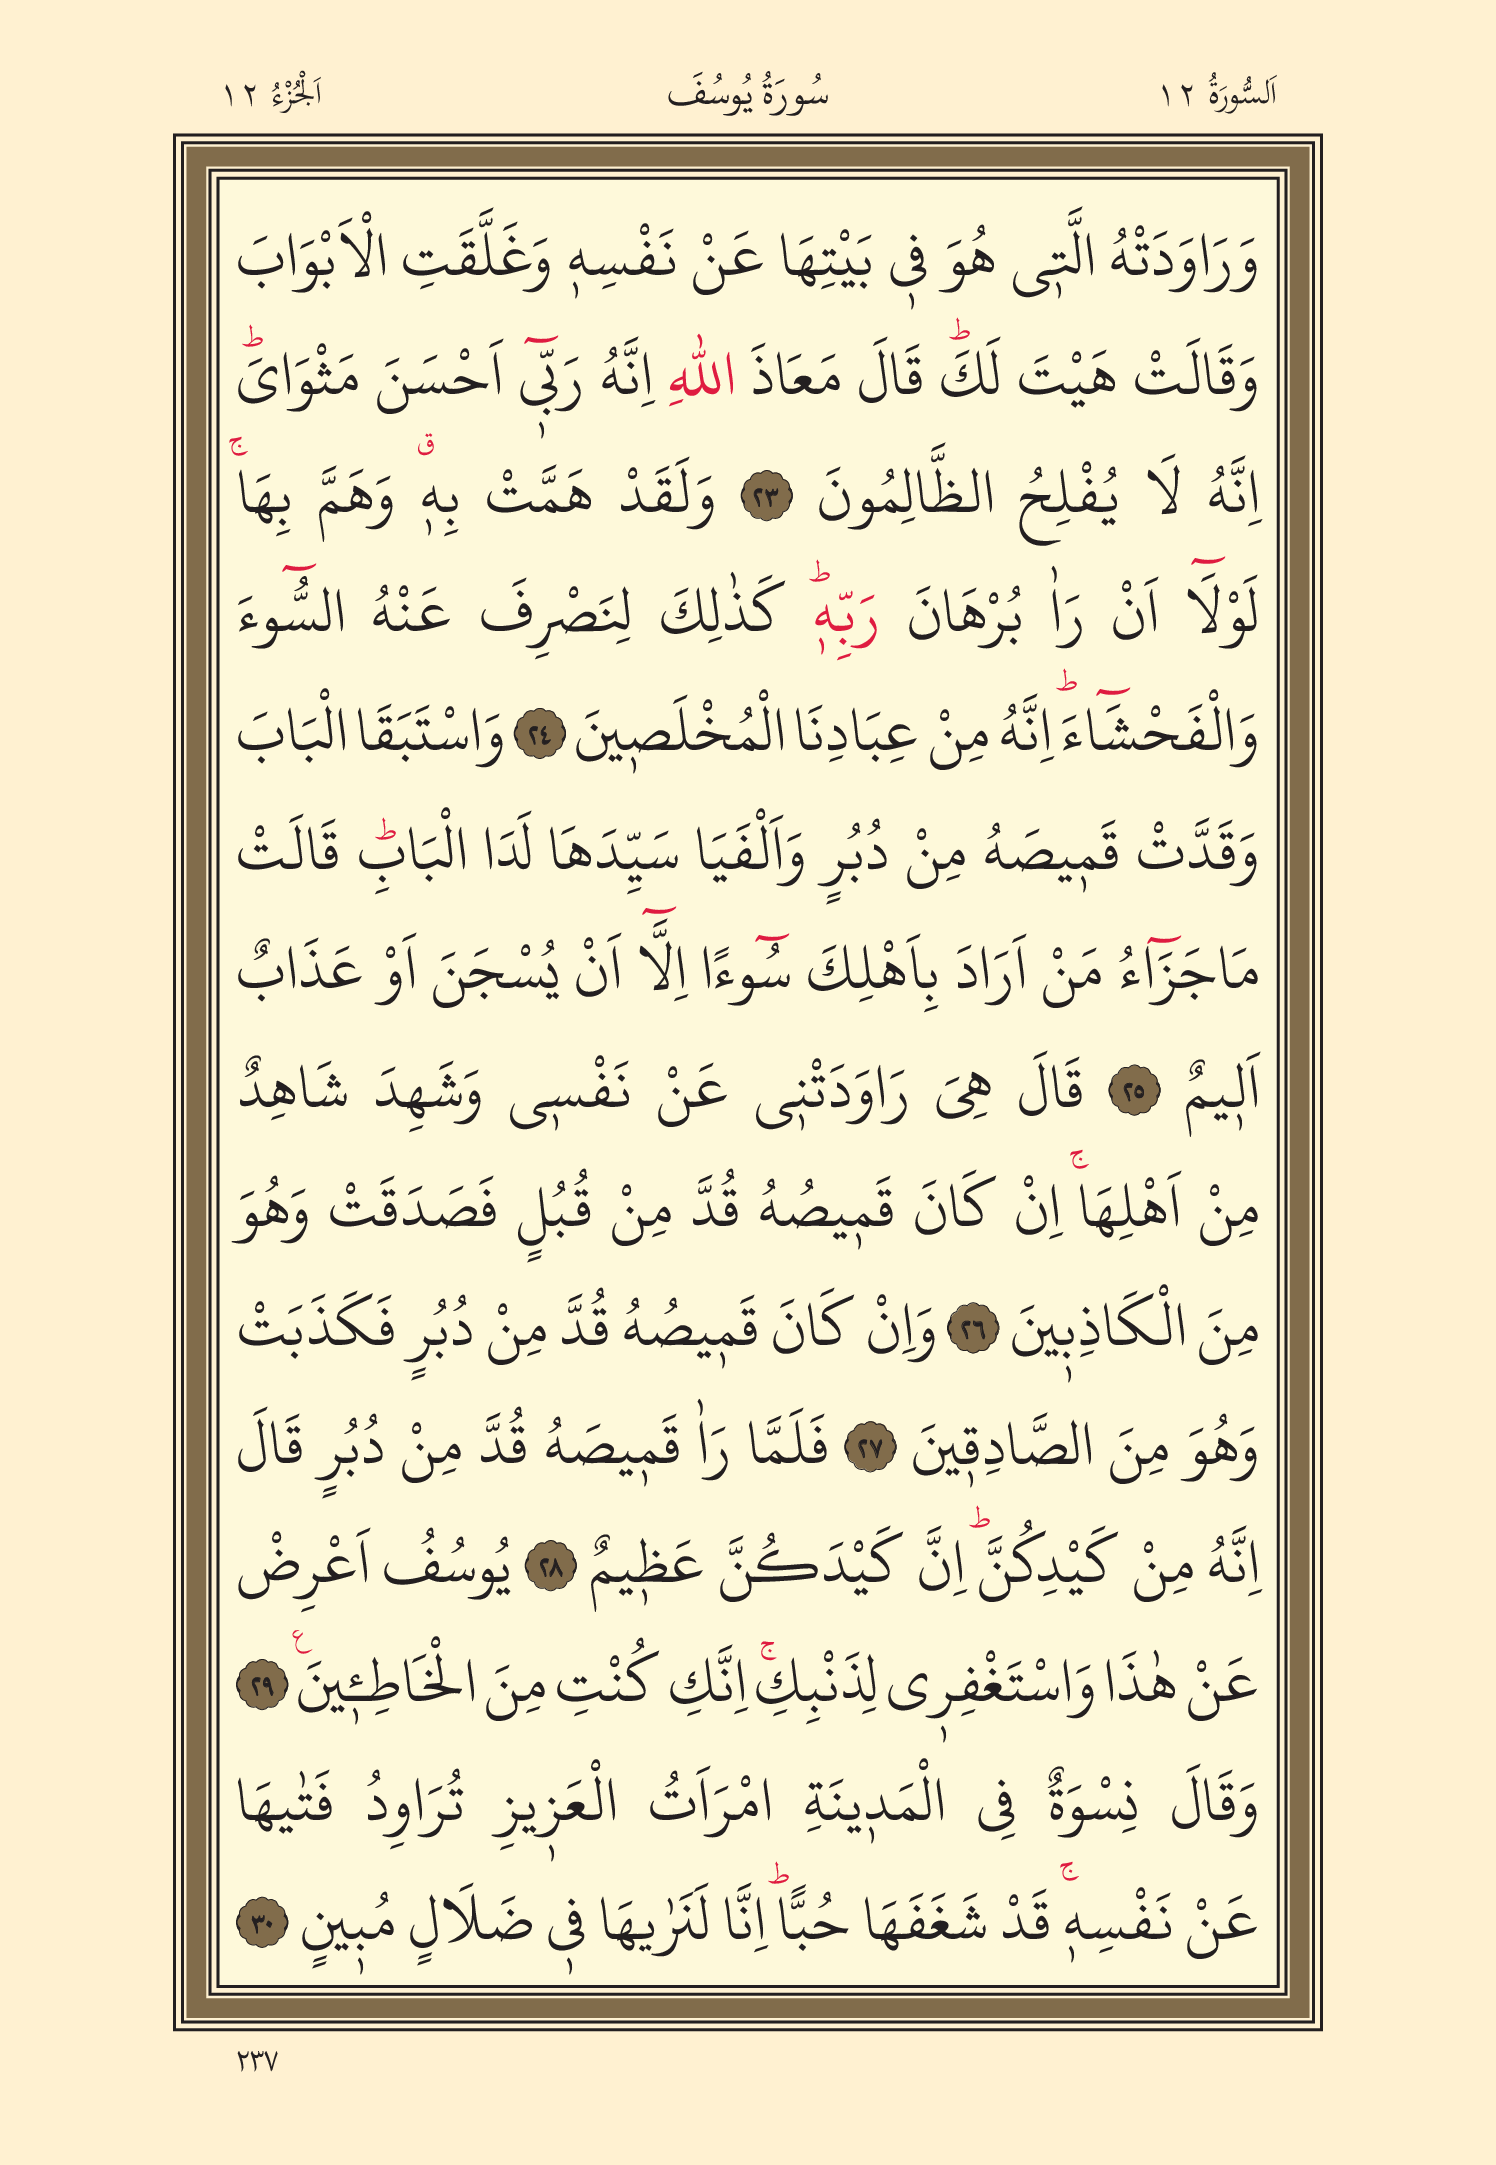 اَلسُّورَةُ ١٢ سُورَةُ يُوسُفَ اَلْجُزْءُ ١٢
وَرَاوَدَتْهُ الَّتٖى هُوَ فٖى بَيْتِهَا عَنْ نَفْسِهٖ وَغَلَّقَتِ الْاَبْوَابَ
وَقَالَتْ هَيْتَ لَكَؕ قَالَ مَعَاذَ اللّٰهِ اِنَّهُ رَبّٖٓى اَحْسَنَ مَثْوَاىَؕ
اِنَّهُ لَا يُفْلِحُ الظَّالِمُونَ ٢٣ وَلَقَدْ هَمَّتْ بِهٖقۚ وَهَمَّ بِهَاۚ
لَوْلَٓا اَنْ رَاٰ بُرْهَانَ رَبِّهٖؕ كَذٰلِكَ لِنَصْرِفَ عَنْهُ السُّٓوءَ
وَالْفَحْشَٓاءَؕ اِنَّهُ مِنْ عِبَادِنَا الْمُخْلَصٖينَ ٢٤ وَاسْتَبَقَا الْبَابَ
وَقَدَّتْ قَمٖيصَهُ مِنْ دُبُرٍ وَاَلْفَيَا سَيِّدَهَا لَدَا الْبَابِؕ قَالَتْ
مَاجَزَٓاءُ مَنْ اَرَادَ بِاَهْلِكَ سُٓوءًا اِلَّٓا اَنْ يُسْجَنَ اَوْ عَذَابٌ
اَلٖيمٌ ٢٥ قَالَ هِىَ رَاوَدَتْنٖى عَنْ نَفْسٖى وَشَهِدَ شَاهِدٌ
مِنْ اَهْلِهَاۚ اِنْ كَانَ قَمٖيصُهُ قُدَّ مِنْ قُبُلٍ فَصَدَقَتْ وَهُوَ
مِنَ الْكَاذِبٖينَ ٢٦ وَاِنْ كَانَ قَمٖيصُهُ قُدَّ مِنْ دُبُرٍ فَكَذَبَتْ
وَهُوَ مِنَ الصَّادِقٖينَ ٢٧ فَلَمَّا رَاٰ قَمٖيصَهُ قُدَّ مِنْ دُبُرٍ قَالَ
اِنَّهُ مِنْ كَيْدِكُنَّؕ اِنَّ كَيْدَكُنَّ عَظٖيمٌ ٢٨ يُوسُفُ اَعْرِضْ
عَنْ هٰذَا وَاسْتَغْفِرٖى لِذَنْبِكِۚ اِنَّكِ كُنْتِ مِنَ الْخَاطِـٖٔينَع ٢٩
وَقَالَ نِسْوَةٌ فِى الْمَدٖينَةِ امْرَاَتُ الْعَزٖيزِ تُرَاوِدُ فَتٰيهَا
عَنْ نَفْسِهٖۚ قَدْ شَغَفَهَا حُبًّاؕ اِنَّا لَنَرٰيهَا فٖى ضَلَالٍ مُبٖينٍ ٣٠
٢٣٧